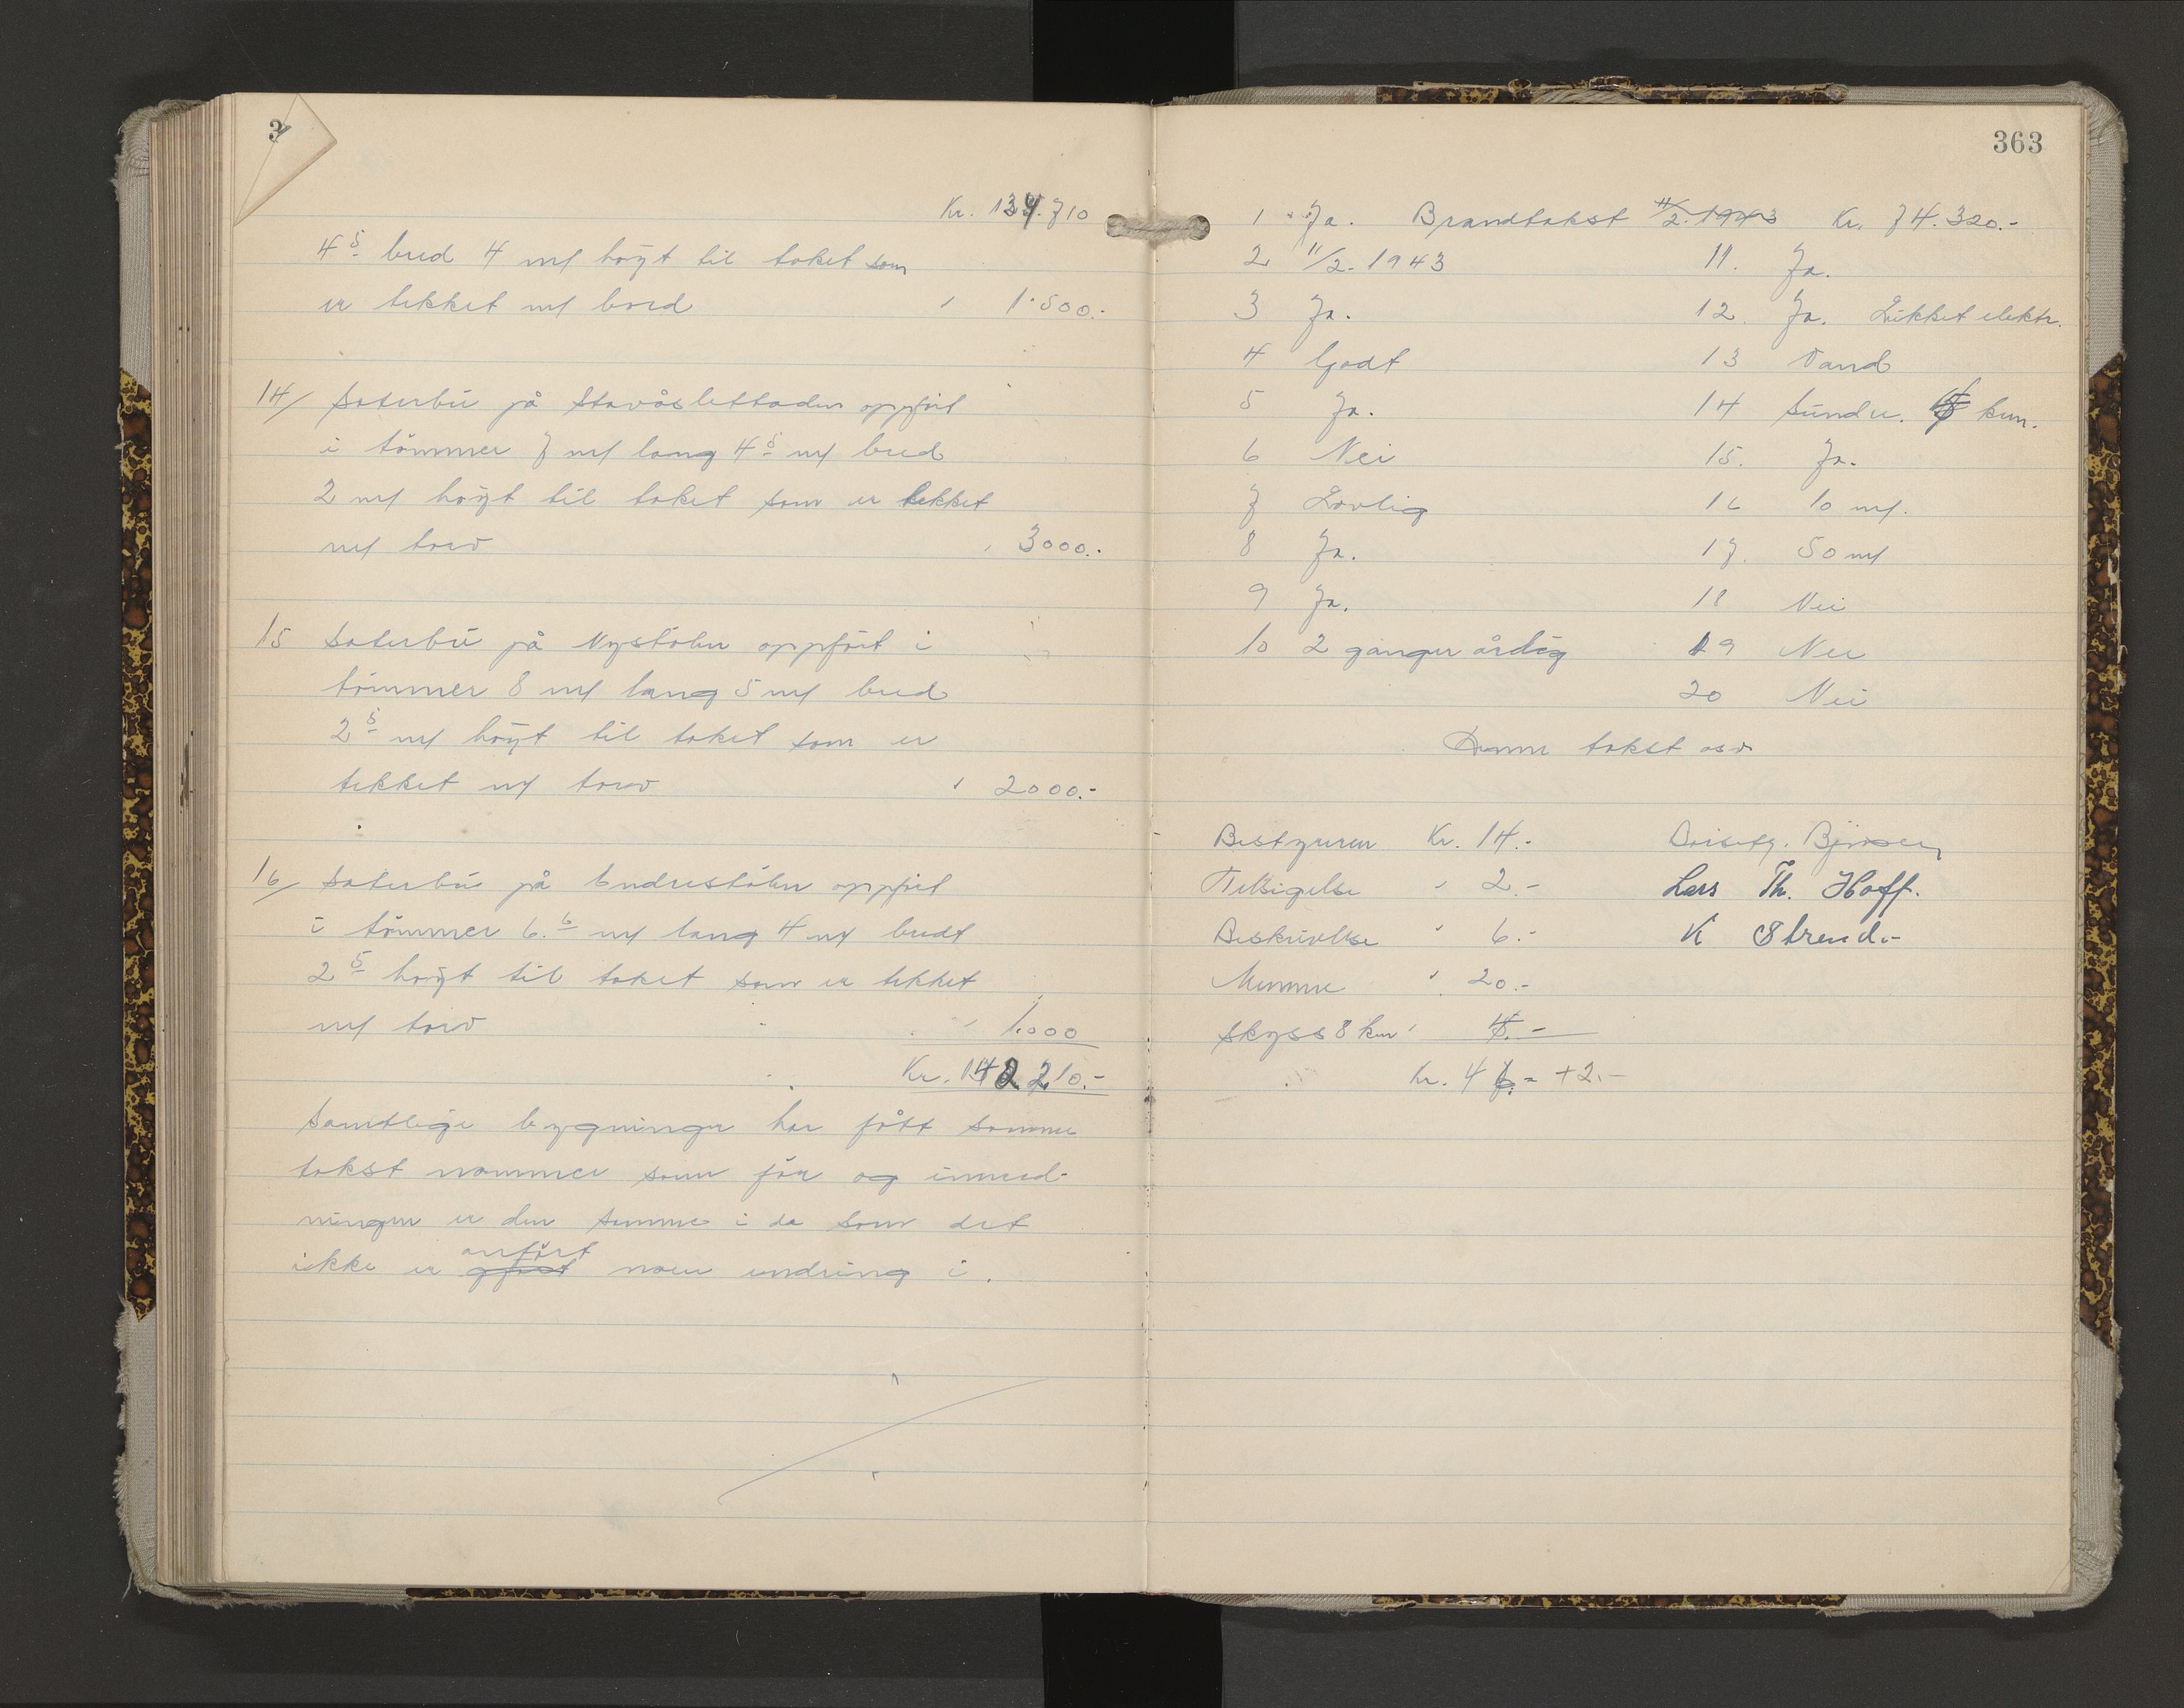 Kr. 134.710
4⁵ bred 4 m/ høyt til taket som
er tekket m/ bord " 1.500.-
14/ Sæterbu på Stavåslettaden oppført
i tømmer 7 m/ lang 4⁵ m/ bred
2 m/ høyt til taket som er tekket
m/ torv " 3000.-
15 Sæterbu på Nystølen oppført i
tømmer 8 m/ lang 5 m/ bred
2⁵ m/ høyt til taket som er
tekket m/ torv " 2000.-
16/ Sæterbu på Endrestølen oppført
i tømmer 6.⁶ m/ lang 4 m/ bredt
2⁵ høyt til taket som er tekket
m/ torv " 1.000
Kr. 142 210.-
Samtlige bygninger har fått samme
takst nommer som før og innred-
ningen er den samme i da som det
anført
ikke er noen endring i.
363
1 Ja. Brandtakst 11/2. 1943 Kr. 74.320.-
2 11/2. 1943 11. Ja.
3 Ja. 12. Ja. Lukket elektr.
4 Godt 13 Vand
5 Ja. 14 Sundre. km.
6 Nei 15. Ja.
7 Lovlig 16 10 m/.
8 Ja. 17. 50 m/
9 Ja. 18 Nei
10 2 ganger årlig 19 Nei
20 Nei
Denne takst osv
Bestyreren Kr. 14.-
Tilsigelse " 2.- Lars Th. Hoff.
Beskrivelse " 6.- K Strend.-
Mennene " 20.-
Skyss 8 km "
Kr. 4 +2.-